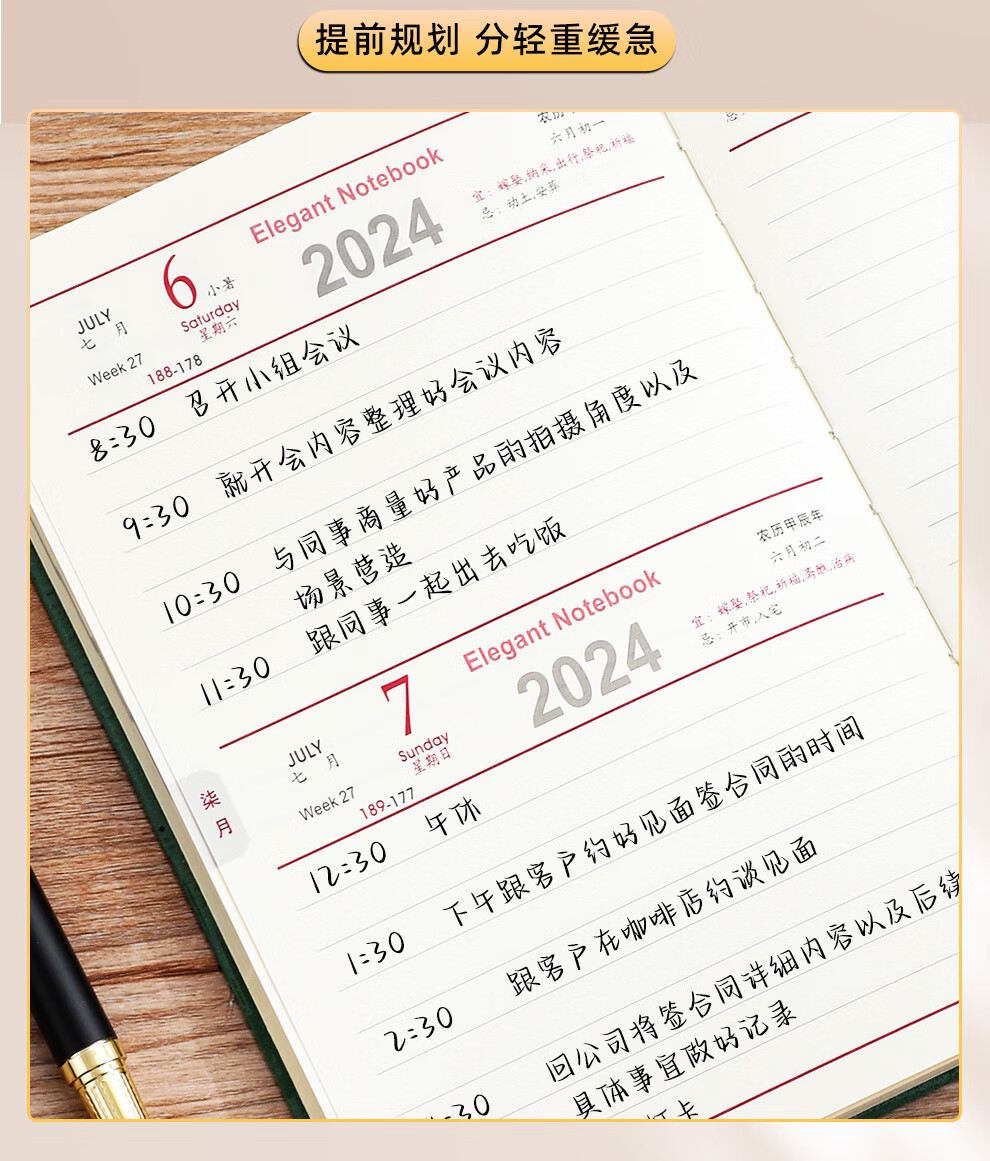 提前规划 分轻重缓急
农历
六月初一
宜：嫁娶,纳采,出行,祭祀,祈福
忌：动土,安葬
Elegant Notebook
2024
JULY
七月
6
小暑
Saturday
星期六
Week 27
188-178
8:30 召开小组会议
9:30 就开会内容整理好会议内容
10:30 与同事商量好产品的拍摄角度以及
场景营造
11:30 跟同事一起出去吃饭
农历甲辰年
六月初二
宜：嫁娶,祭祀,祈福,斋醮,治病
忌：开市,入宅
Elegant Notebook
2024
JULY
七月
7
Sunday
星期日
Week 27
189-177
柒月
12:30 午休
1:30 下午跟客户约好见面签合同的时间
2:30 跟客户在咖啡店约谈见面
:30 回公司将签合同详细内容以及后续
具体事宜做好记录
打卡